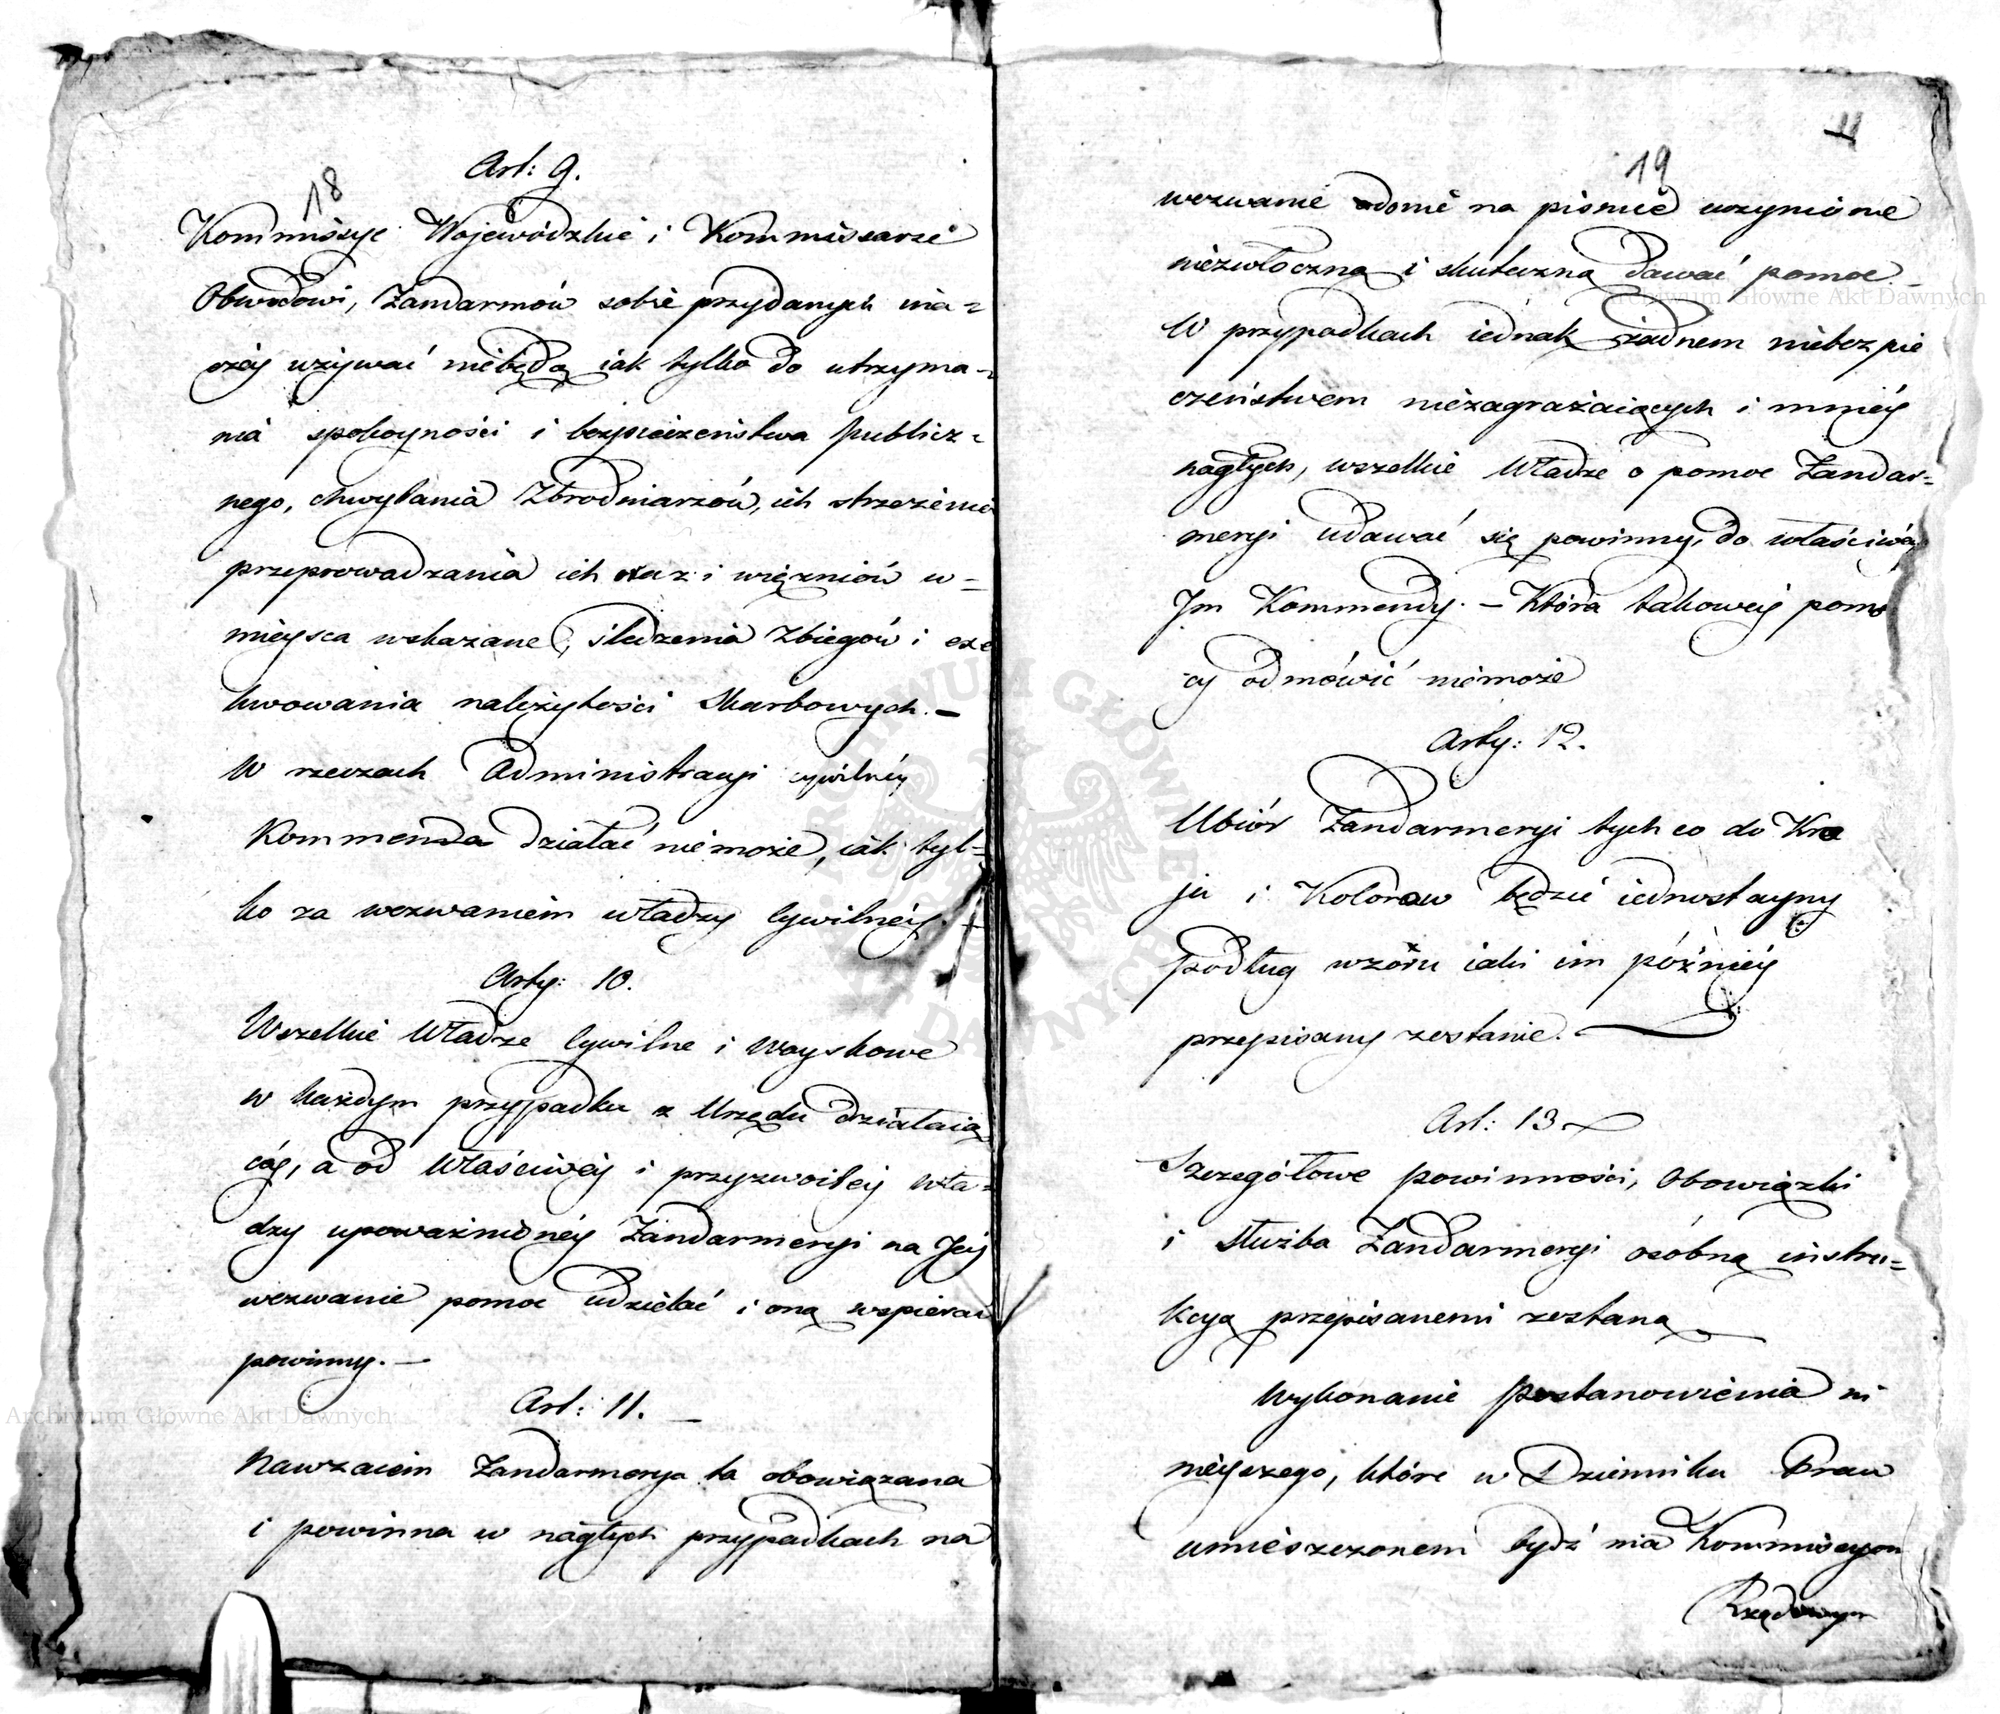 18
Art: 9.
Kommissye Wojewódzkie i Kommissarze
Obwodowi, Żandarmów sobie przydanych ina=
czéj używać niebędą jak tylko do utrzyma=
nia spokoyności i bezpieczeństwa public=
nego, chwytania Zbrodniarzów, ich strzeżenia
przeprowadzania ich oraz i więzniów w=
mieysca wskazane, śledzenia Zbiegów i exe
kwowania należytości Skarbowych.—
W rzeczach Administracyi cywilnéy
Kommenda działać niemoże, iak tyl=
ko za wezwaniem władzy Cywilnéy.—
Arty: 10.
Wszelkie Władze Cywilne i Woyskowe
w każdym przypadku z Urzędu działaią
céy, a od Właściwéy i przyzwoitéy wła=
dzy upoważnionéy Żandarmeryi na Jéy
wezwanie pomoc udzielać i oną wspierać
powinny.—
Art: 11.—
Nawzaiem Żandarmerya ta obowiązana
i powinna w nagłych przypadkach na
11
19
wezwanie do nié na piśmie uczynione
niezwłoczną i skuteczną dawać pomoc.—
W przypadkach iednak żadnem niebezpie
czeństwem niezagrażaiących i mniéy
nagłych, wszelkie Władze o pomoc Żandar=
meryi udawać się powinny, do właściwéy
Jm Kommendy.—Która takowéy pomo
cy odmówić niemoże
Arty: 12.
Ubiór Żandarmeryi tych co do Kro
ju i Kolorów będzie iednostayny
podług wzoru iaki im późniéy
przepisany zostanie.
Art: 13.
Szczegółowe powinności, Obowiązki
i Służba Żandarmeryi osóbną instru=
kcyą przepisanemi zostaną
Wykonanie Postanowienia ni
nieyszego, które w Dzienniku Praw
umieszczonem bydź ma Kommissyom
Rządowym
Archiwum Główne Akt Dawnych
Archiwum Główne Akt Dawnych
ARCHIWUM GŁÓWNE AKT DAWNYCH